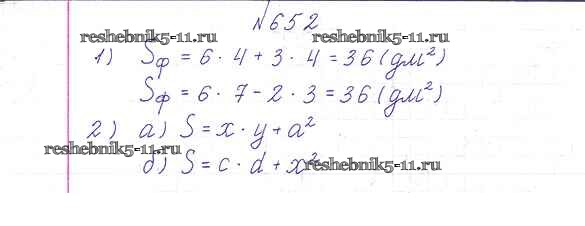 №652
reshebnik5-11.ru reshebnik5-11.ru
1) Sф = 6 · 4 + 3 · 4 = 36 (дм²)
Sф = 6 · 7 - 2 · 3 = 36 (дм²)
2) а) S = x · y + a²
reshebnik5-11.ru
б) S = c · d + x²
reshebnik5-11.ru